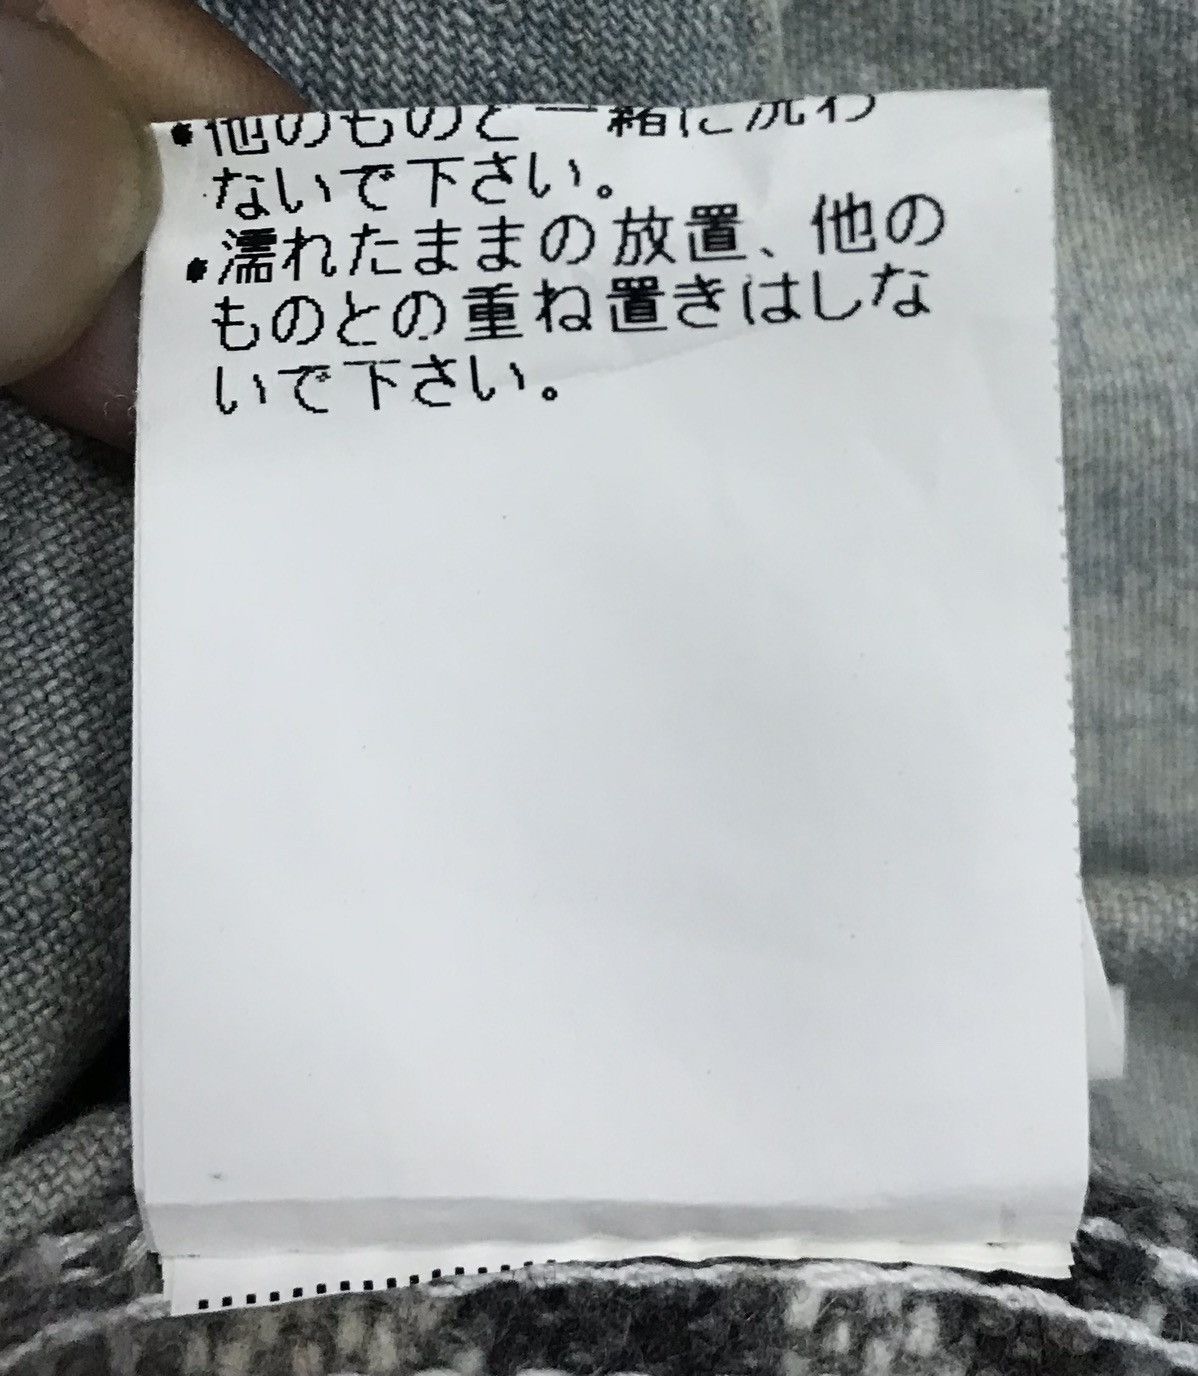 ●他のものと一緒に洗わ
ないで下さい。
●濡れたままの放置、他の
ものとの重ね置きはしな
いで下さい。